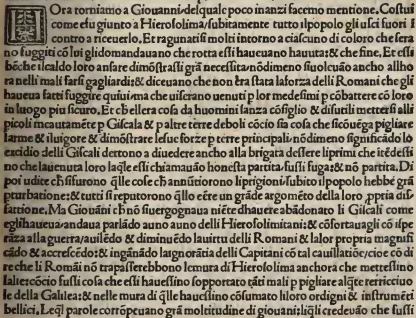 Ora torniamo a Giouanni: delquale poco inanzi facemo mentione. Costui
come esu giunto a Hierosolima/subitamente tutto ilpopolo gli usci fuori i
contro a riceuerlo. Et ragunatisi molti intorno a ciascuno di coloro che sera
no fuggiti cō lui glidomandauano che rotta essi haueuano hauuta: & che fine. Et essi
bēche ilcaldo loro ansare dimōstrassi grā necessita/nōdimeno siuolcuāo ancho allho
ra nelli mali farsi gagliardi: & diceuano che non era stata laforza delli Romani che gli
haueua fatti fuggire quiui: ma che uiserano uenuti p lor medesimi p cōbattere cō loro
in luogo piu sicuro. Et ch ellera cosa da huomini sanza cōsiglio & disutili mettersi alli
picoli incautamēte p Giscala & p altre terre deboli cōcio sia cosa che sicōuēga pigliare
larme & iluigore & dimōstrare lesue forze p terre principali: nōdimeno significādo lo
excidio delli Giscali dettono a diuedere ancho alla brigata dessere liprimi che itēdessi
no che lauenuta loro laqle essi chiamauāo honesta partita: fussi fuga: & nō partita. Di
poi udite ch sifurono qlle cose ch annūtiorono liprigioni: subito ilpopolo hebbe grā
pturbatione: & tutti si reputorono qllo eēre un grāde argomēto della loro ,ppria dis-
fattione. Ma Giouāni ch nō suergognaua niēte dhauere abādonato li Giscali come
eglihaueua: andaua parlādo auno auno delli Hierosolimitani: & cōfortauagli cō ispe
rāza alla guerra/auilēdo & diminuēdo lauirtu delli Romani & lalor propria magnifi
cādo & accrescēdo: & ingānādo laignorātia delli Capitani cō tal cauillatiōe/cioe cō di
re che li Romāi nō trapasserebbono lemura di Hierosolima anchora che mettessino
lalie: cōcio fussi cosa che essi hauessino sopportato tāti mali p pigliare alqte terricciuo
le della Galilea: & nelle mura di qlle hauessino cōsumato liloro ordigni & instrumēti
bellici. Leql parole corrōpeuano grā moltitudine di giouani: liqli credeuāo che fussi